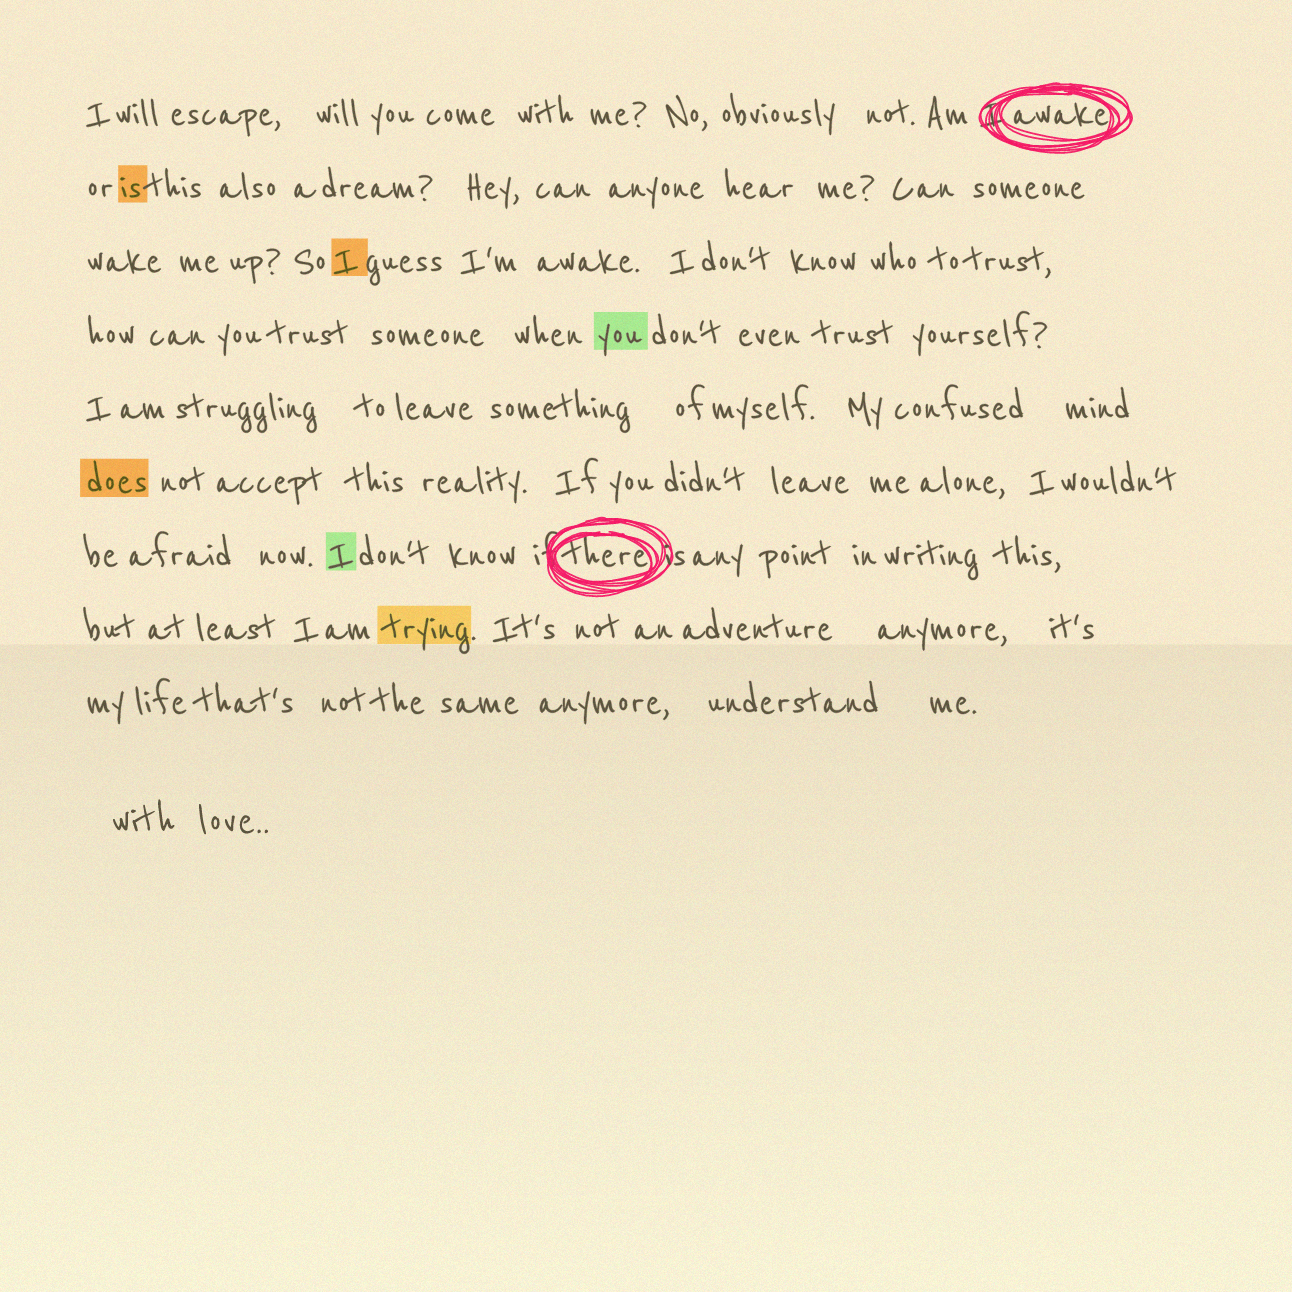 I will escape, will you come with me? No, obviously not. Am I awake
or is this also a dream? Hey, can anyone hear me? Can someone
wake me up? So I guess I'm awake. I don't know who to trust,
how can you trust someone when you don't even trust yourself?
I am struggling to leave something of myself. My confused mind
does not accept this reality. If you didn't leave me alone, I wouldn't
be afraid now. I don't know if there is any point in writing this,
but at least I am trying. It's not an adventure anymore, it's
my life that's not the same anymore, understand me.
with love..